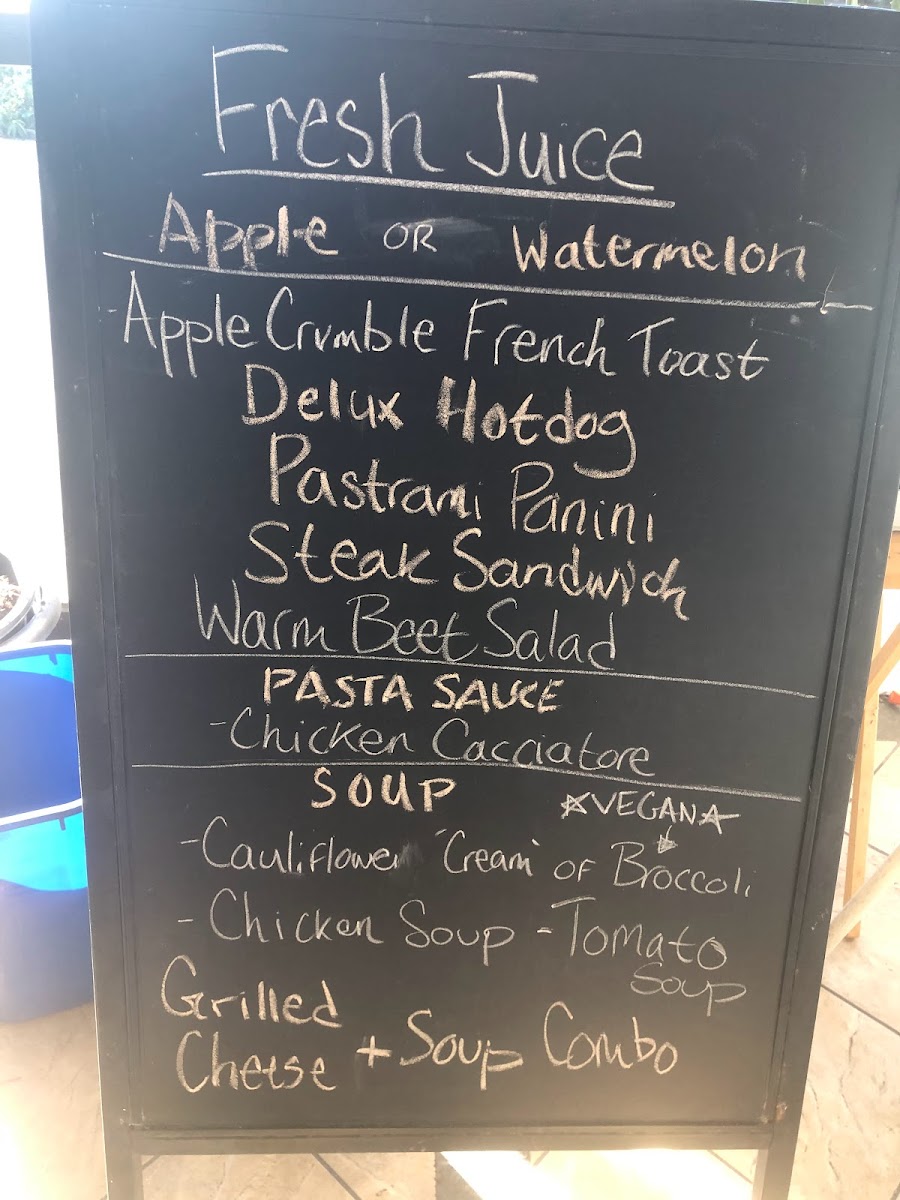 Fresh Juice
Apple OR Watermelon
Apple Crumble French Toast
Delux Hotdog
Pastrami Panini
Steak Sandwich
Warm Beet Salad
PASTA SAUCE
-Chicken Cacciatore
SOUP ☆VEGAN☆
-Cauliflower "Cream" OF Broccoli
-Chicken Soup -Tomato Soup
Grilled Cheese + Soup Combo